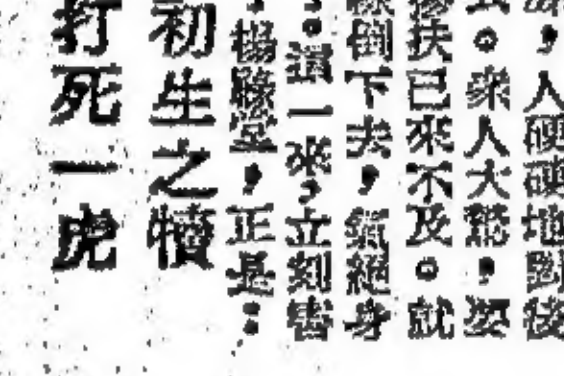 ，人硬硬地後
。衆人大驚，
扶已來不及。就
倒下去，氣絕身
。這一來，立刻
，楊堂，正是：
初生之犢
打死一虎